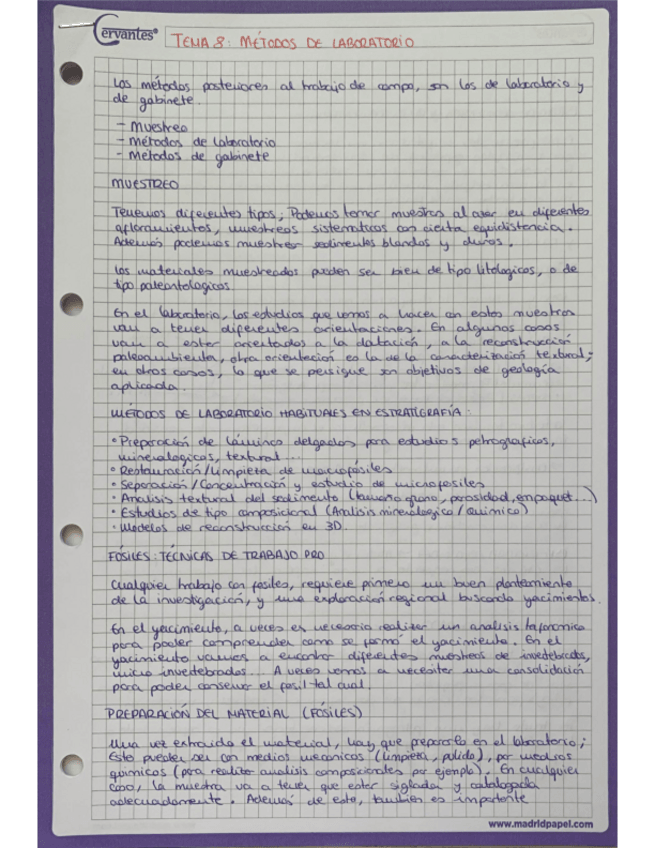 Cervantes®
TEMA 8: MÉTODOS DE LABORATORIO
Los métodos posteriores al trabajo de campo, son los de laboratorio y
de gabinete.
- Muestreo
- Métodos de laboratorio
- Métodos de gabinete
MUESTREO
Tenemos diferentes tipos; Podemos tomar muestras al azar en diferentes
afloramientos, muestreos sistematicos con cierta equidistancia.
Además podemos muestrear sedimentos blandos y duros.
Los materiales muestreados pueden ser bien de tipo litologicos, o de
tipo paleontologicos
En el laboratorio, los estudios que vamos a hacer con estas muestras
van a tener diferentes orientaciones. En algunos casos
van a estar orientados a la datación, a la reconstrucción
paleoambiental, otra orientación es la de la caracterización textural;
en otros casos, lo que se persigue son objetivos de geología
aplicada.
MÉTODOS DE LABORATORIO HABITUALES EN ESTRATIGRAFÍA:
• Preparación de láminas delgadas para estudios petrograficos,
mineralogicos, textural...
• Restauración/limpieza de macrofósiles
• Separación/Concentración y estudio de microfosiles
• Analisis textural del sedimento (tamaño grano, porosidad, empaquet...)
• Estudios de tipo composicional (Analisis mineralogico/quimico)
• Modelos de reconstrucción en 3D.
FÓSILES: TÉCNICAS DE TRABAJO PRO
Cualquier trabajo con fosiles, requiere primero un buen planteamiento
de la investigación, y una exploración regional buscando yacimientos.
En el yacimiento, a veces es necesario realizar un analisis tafonomico
para poder comprender como se formó el yacimiento. En el
yacimiento vamos a encontrar diferentes muestreos de invertebrados,
micro invertebrados... A veces vamos a necesitar una consolidación
para poder conservar el fosil tal cual.
PREPARACIÓN DEL MATERIAL (FÓSILES)
Una vez extraido el material, hay que prepararlo en el laboratorio;
Esto puede ser con medios mecanicos (limpieza, pulido), por medios
quimicos (para realizar analisis composicionales por ejemplo). En cualquier
caso, la muestra va a tener que estar siglada y catalogada
adecuadamente. Además de esto, tambien es importante
www.madridpapel.com